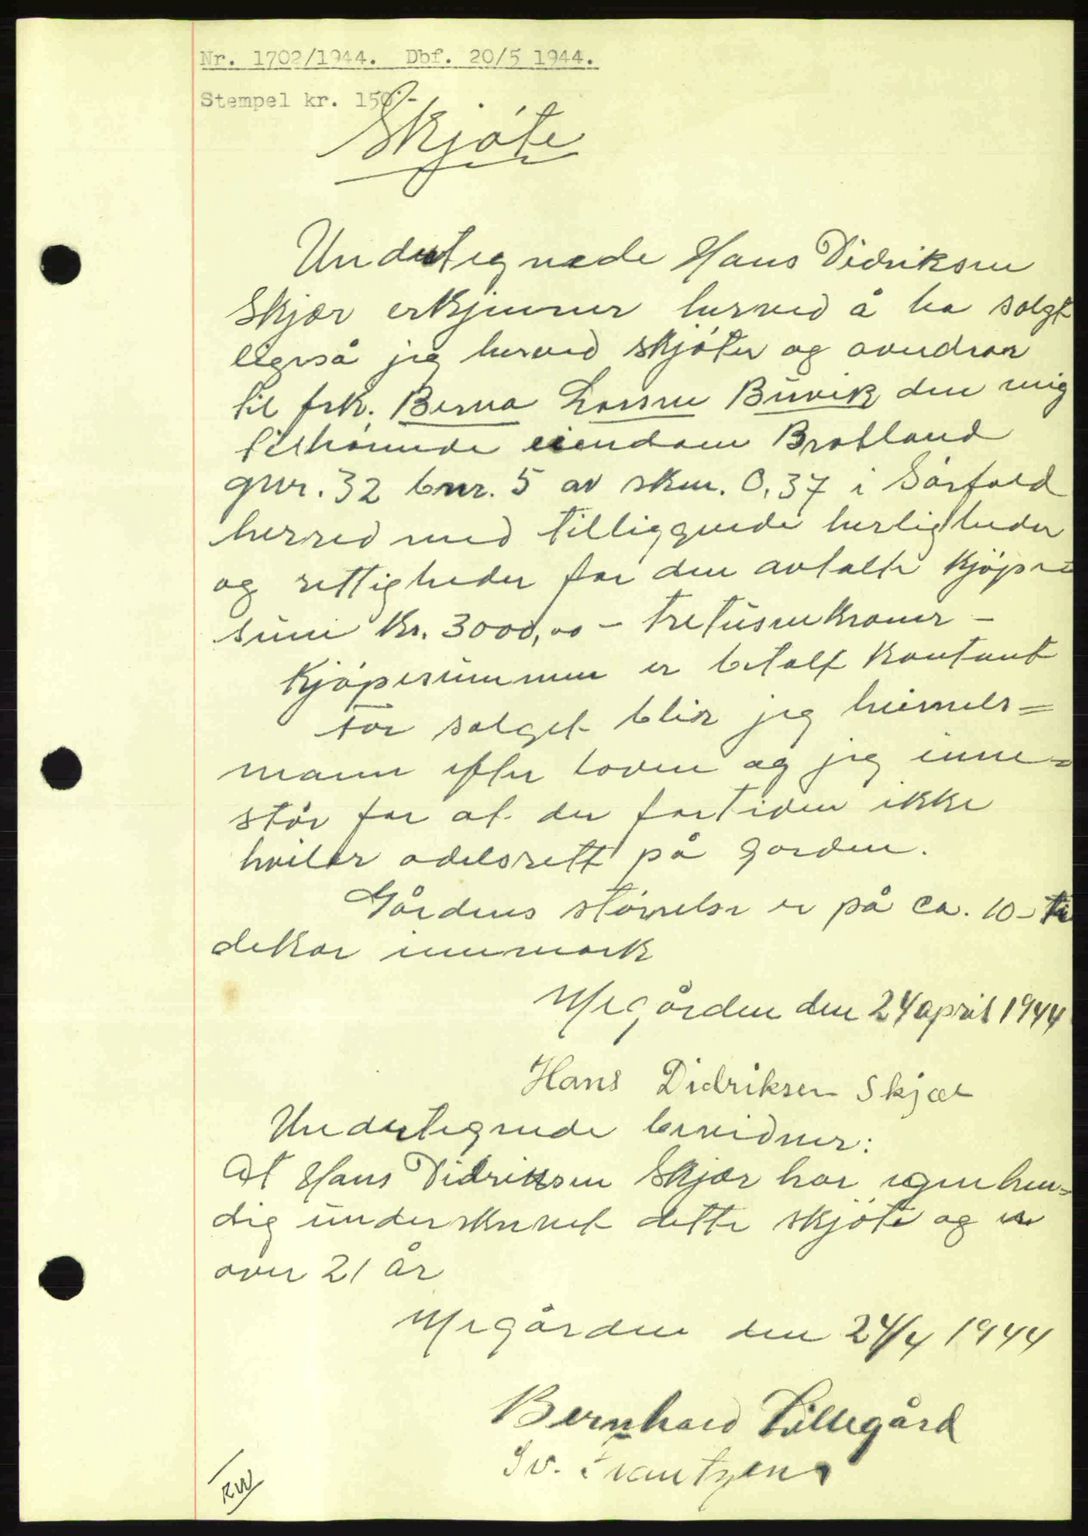 Nr. 1702/1944. Dbf. 20/5 1944.
Stempel kr. 150.-
Skjøte
Undertegnede Hans Didriksen
Skjær erkjenner herved å ha solgt
ligeså jeg herved skjøter og overdrar
til frk. Berna Larsen Buvik den mig
tilhørende eiendom Bratland
gnr. 32 bnr. 5 av skm. 0,37 i Sørfold
herred med tilliggende herligheder
og rettigheder for den avtalte kjøpe=
sum Kr. 3000,00 – tretusenkroner –
Kjøpesummen er betalt kontant
For salget blir jeg heimels=
mann efter loven og jeg inne=
står for at der fortiden ikke
hviler odelsrett på gården.
Gårdens størrelse er på ca. 10 – ti
dekar innmark
Megården den 24 april 1944
Hans Didriksen Skjær
Undertegnede bevidner:
At Hans Didriksen Skjær har egenhen=
dig underskrevet dette skjøte og er
over 21 år
Megården den 24/4 1944
Bernhard Lillegård
Sv. Frantzen
RW